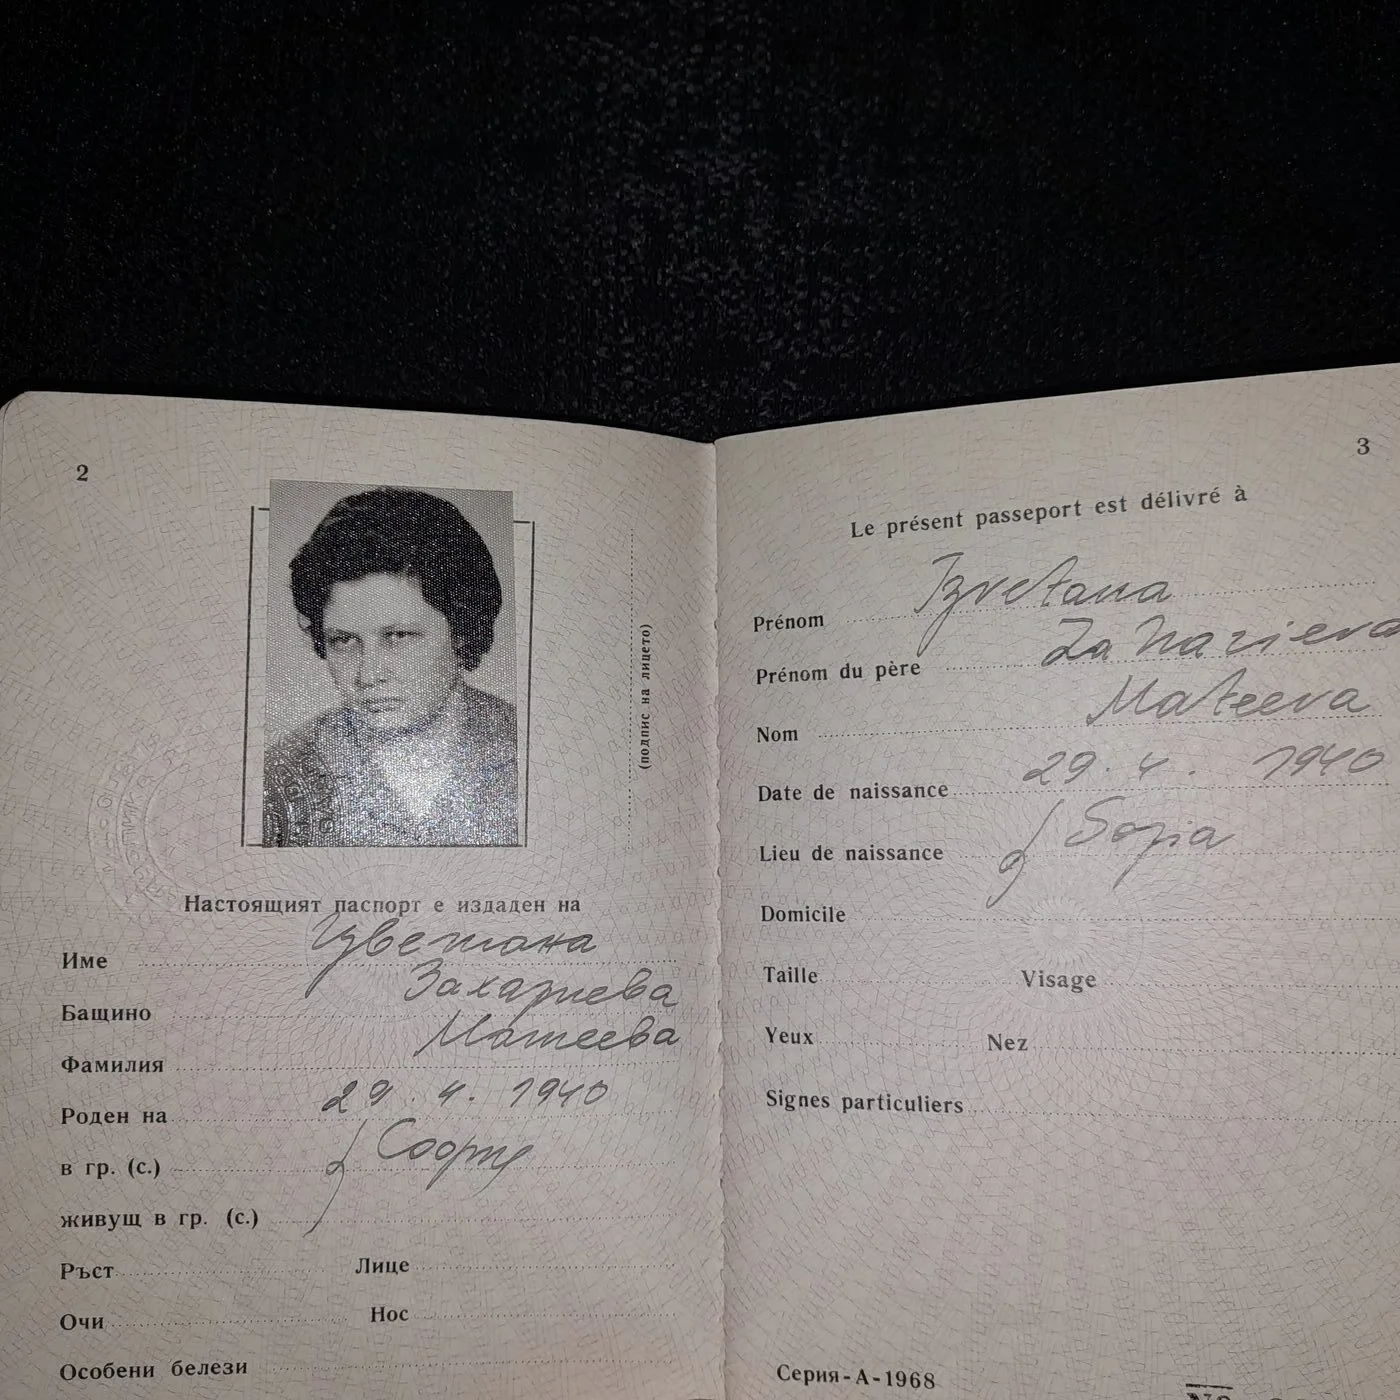 2
(подпис на лицето)
Настоящият паспорт е издаден на
Име Цветана
Бащино Захариева
Фамилия Матеева
Роден на 29. 4. 1940
в гр. (с.) София
живущ в гр. (с.)
Ръст Лице
Очи Нос
Особени белези
3
Le présent passeport est délivré à
Prénom Tzvetana
Prénom du père Zaharieva
Nom Mateeva
Date de naissance 29. 4. 1940
Lieu de naissance Sofia
Domicile
Taille Visage
Yeux Nez
Signes particuliers
Серия-А-1968
№